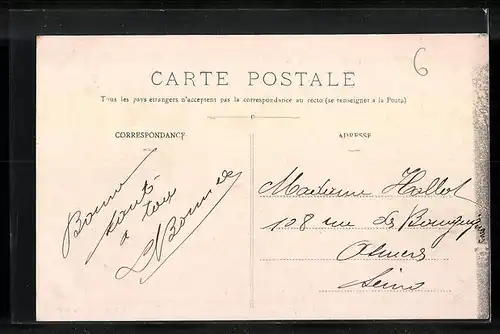 6
CARTE POSTALE
Tous les pays étrangers n'acceptent pas la correspondance au recto (se renseigner à la Poste)
CORRESPONDANCE
ADRESSE
Bonne
santé
à tous
Madame Hallot
108 rue de
Seine